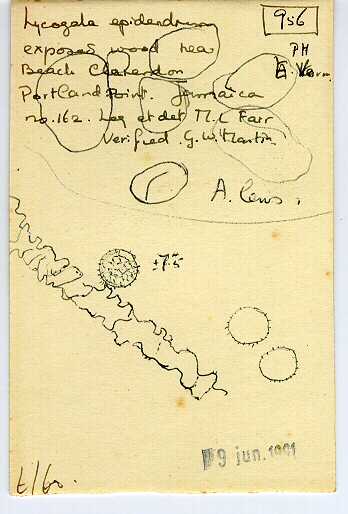 Lycogala epidendrum
956
exposed wood near
PH
Beach Clarendon
Portland Point. Jamaica
no. 162. Leg et det M.L Farr
Verified. G.W. Martin
A. laws.
±7.5
9 jun. 1991